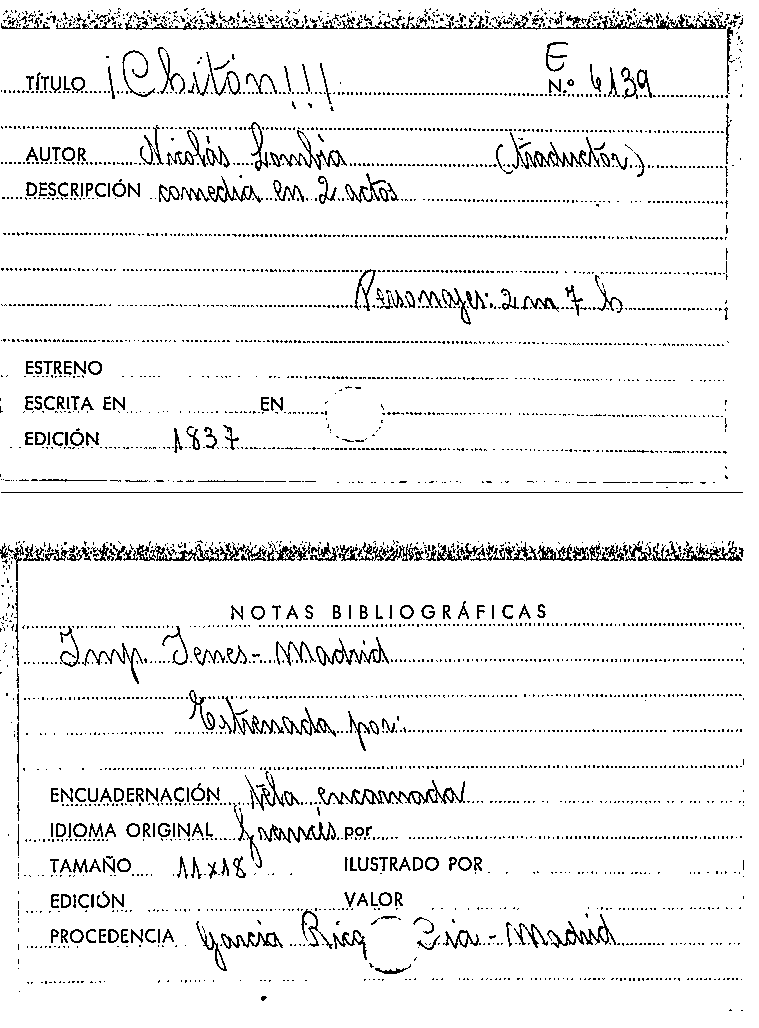 E
TÍTULO ¡Chitón!!! N.º 6139
AUTOR Nicolás Lombia (traductor)
DESCRIPCIÓN comedia en 2 actos
Personajes: 2 m 7 h
ESTRENO
ESCRITA EN EN
EDICIÓN 1837
NOTAS BIBLIOGRÁFICAS
Imp. Yenes - Madrid
Estrenada por:
ENCUADERNACIÓN tela encarnada
IDIOMA ORIGINAL francés por
TAMAÑO 11x18 ILUSTRADO POR
EDICIÓN VALOR
PROCEDENCIA García Rico Cia - Madrid